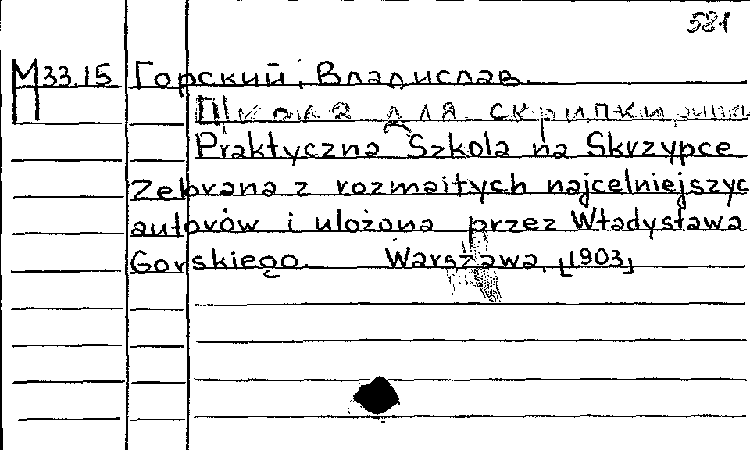 581
М33.15 Горский, Владислав.
П Школа для скрипки
Praktyczna Szkola na Skrzypce
Zebrana z rozmaitych najcelniejszyc
autorów i ulożona przez Władysława
Gorskiego. Warszawa, [1903]